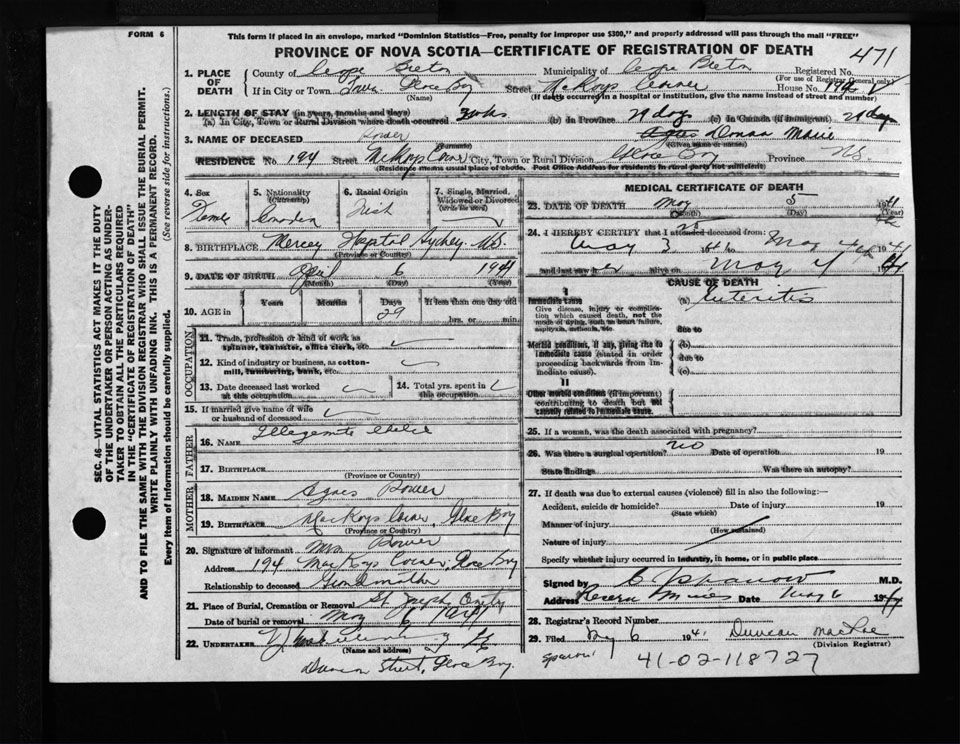 FORM 6
This form if placed in an envelope, marked "Dominion Statistics—Free, penalty for improper use $300," and properly addressed will pass through the mail "FREE"
PROVINCE OF NOVA SCOTIA—CERTIFICATE OF REGISTRATION OF DEATH
471
1. PLACE OF DEATH
County of Cape Breton Municipality of Cape Breton Registered No.
(For use of Registrar General only)
If in City or Town Town Glace Bay Street McKays Corner House No. 194
(Name) (If death occurred in a hospital or institution, give the name instead of street and number)
2. LENGTH OF STAY (in years, months and days)
(a) In City, Town or Rural Division where death occurred (b) in Province 29 days (c) In Canada (if immigrant) 29 days
3. NAME OF DECEASED Power Agnes Donna Marie
(Surname) (Given name or names)
RESIDENCE No. 194 Street McKays Corner City, Town or Rural Division Glace Bay Province N.S.
(Residence means usual place of abode. Post Office Address for residents in rural parts not sufficient)
4. Sex
Female
5. Nationality (Citizenship)
Canadian
6. Racial Origin
Irish
7. Single, Married, Widowed or Divorced (Write the word)
8. BIRTHPLACE Mercey Hospital Sydney N.S.
(Province or Country)
9. DATE OF BIRTH April 6 1941
(Month) (Day) (Year)
10. AGE in Years Months Days If less than one day old
29 hrs. or min.
OCCUPATION
11. Trade, profession or kind of work as spinner, teamster, office clerk, etc.
12. Kind of industry or business, as cotton-mill, lumbering, bank, etc.
13. Date deceased last worked at this occupation
14. Total yrs. spent in this occupation
15. If married give name of wife or husband of deceased
FATHER
16. NAME Illegemite
17. BIRTHPLACE
(Province or Country)
MOTHER
18. MAIDEN NAME Agnes Power
19. BIRTHPLACE MacKays Corner, Glace Bay
(Province or Country)
20. Signature of informant Mrs Power
Address 194 MacKays Corner, Glace Bay
Relationship to deceased Grandmother
21. Place of Burial, Cremation or Removal St. Joseph
Date of burial or removal May 6 1941
22. UNDERTAKER
(Name and address)
Street, Glace Bay.
MEDICAL CERTIFICATE OF DEATH
23. DATE OF DEATH May 5 1941
(Month) (Day) (Year)
24. I HEREBY CERTIFY that I attended deceased from:
May 3 1941 to May 4 1941
and last saw her alive on May 4 1941
CAUSE OF DEATH
I
Immediate cause
Give disease, injury or complication which caused death, not the mode of dying, such as heart failure, asphyxia, asthenia, etc.
(a) Enteritis
due to
Morbid conditions, if any, giving rise to immediate cause (stated in order proceeding backwards from immediate cause).
(b)
due to
(c)
II
Other morbid conditions (if important) contributing to death but not causally related to immediate cause.
25. If a woman, was the death associated with pregnancy?
26. Was there a surgical operation? no Date of operation 19
State findings Was there an autopsy?
27. If death was due to external causes (violence) fill in also the following:
Accident, suicide or homicide? Date of injury 19
(State which)
Manner of injury
(How sustained)
Nature of injury
Specify whether injury occurred in industry, in home, or in public place
Signed by M.D.
Address Reserve Mines Date May 6 1941
28. Registrar's Record Number
29. Filed May 6 1941 Duncan MacRae
(Division Registrar)
41-02-118727
SEC. 46—VITAL STATISTICS ACT MAKES IT THE DUTY OF THE UNDERTAKER OR PERSON ACTING AS UNDERTAKER TO OBTAIN ALL THE PARTICULARS REQUIRED IN THE "CERTIFICATE OF REGISTRATION OF DEATH" AND TO FILE THE SAME WITH THE DIVISION REGISTRAR WHO SHALL ISSUE THE BURIAL PERMIT.
WRITE PLAINLY WITH UNFADING INK. THIS IS A PERMANENT RECORD.
Every item of information should be carefully supplied. (See reverse side for instructions.)